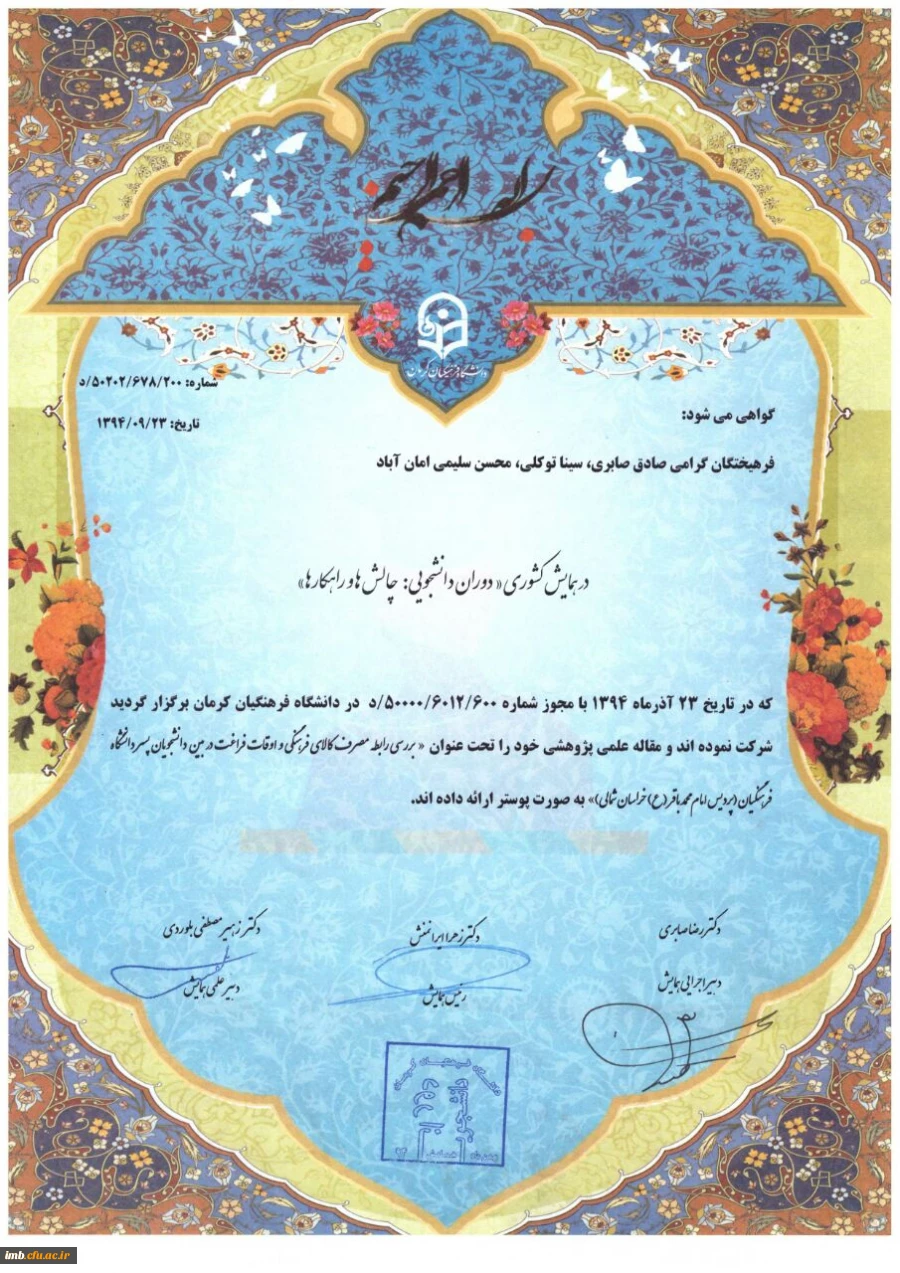 بسم الله الرحمن الرحیم
دانشگاه فرهنگیان کرمان
شماره: ۵۰۲۰۲/۶۷۸/۲۰۰/د
تاریخ: ۱۳۹۴/۰۹/۲۳
گواهی می شود:
فرهیختگان گرامی صادق صابری، سینا توکلی، محسن سلیمی امان آباد
در همایش کشوری « دوران دانشجویی: چالش ها و راهکارها»
که در تاریخ ۲۳ آذرماه ۱۳۹۴ با مجوز شماره ۵۰۰۰۰/۶۰۱۲/۶۰۰/د در دانشگاه فرهنگیان کرمان برگزار گردید
شرکت نموده اند و مقاله علمی پژوهشی خود را تحت عنوان « بررسی رابطه مصرف کالای فرهنگی و اوقات فراغت در بین دانشجویان پسر دانشگاه
فرهنگیان (پردیس امام محمد باقر (ع) خراسان شمالی)» به صورت پوستر ارائه داده اند.
دکتر رضا صابری
دبیر اجرایی همایش
دکتر زهرا ایرانمنش
رئیس همایش
دکتر زهیر مصطفی بلوردی
دبیر علمی همایش
imb.cfu.ac.ir